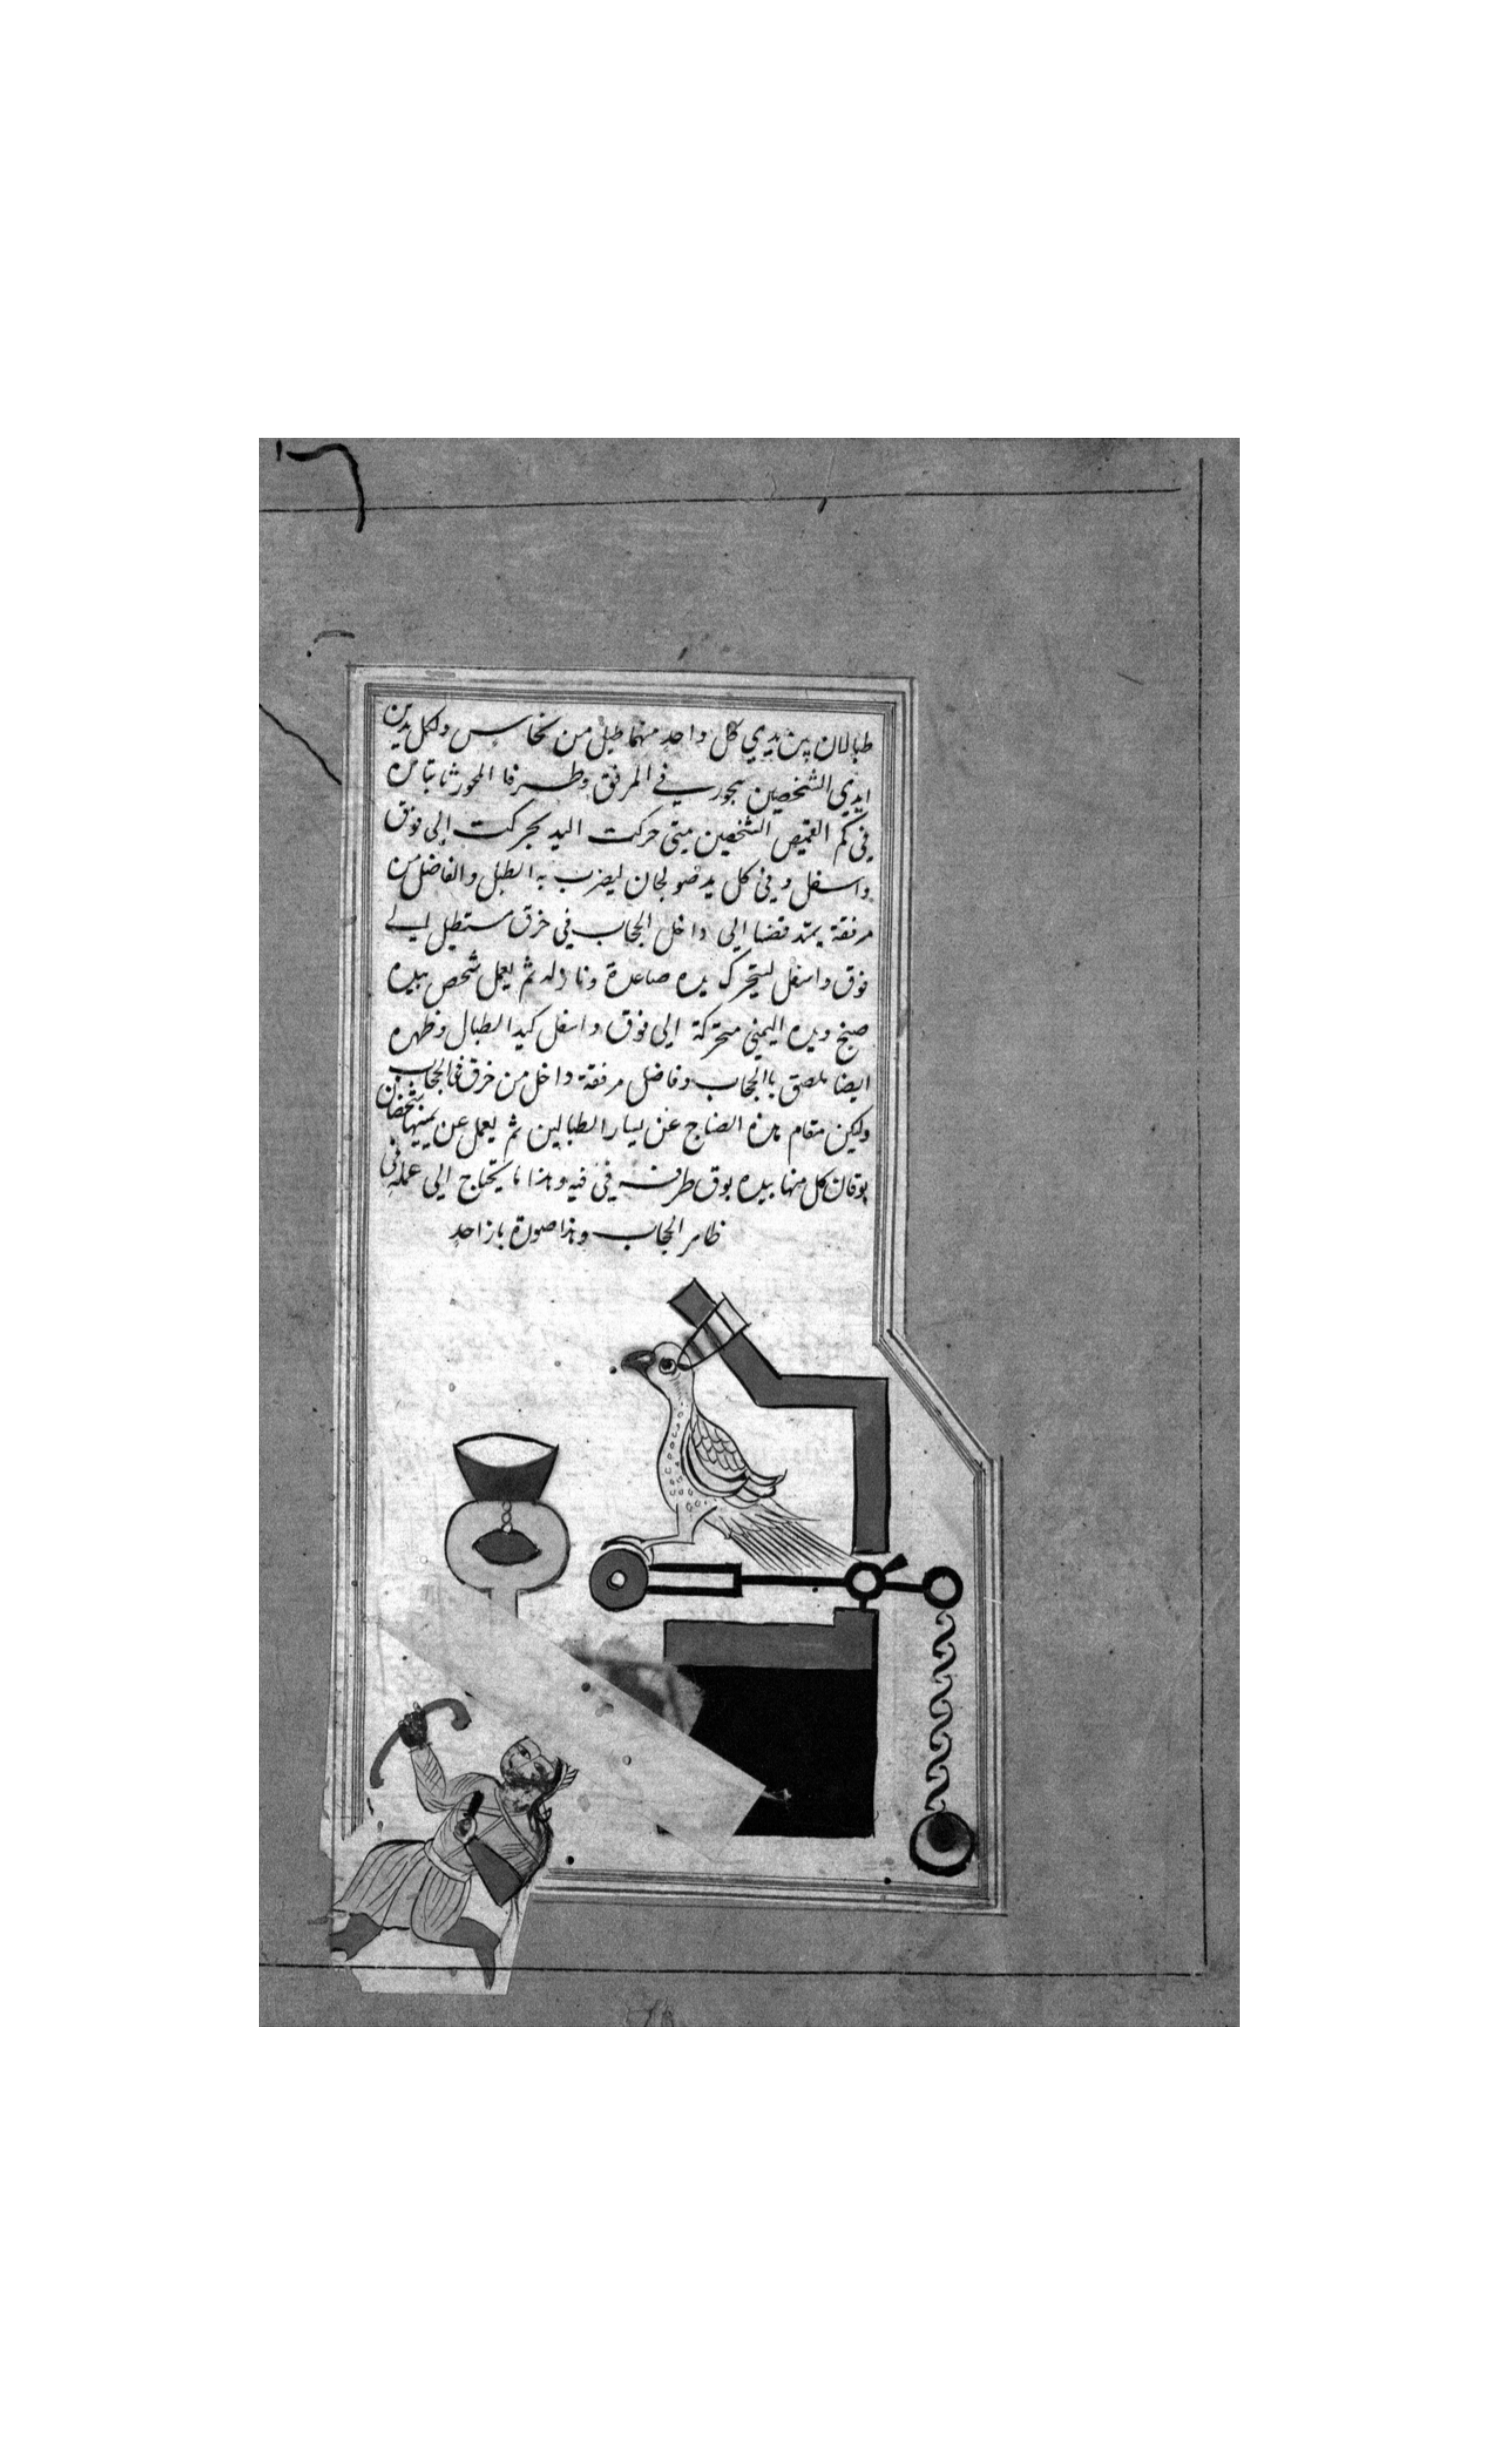 طبالان بين يدي كل واحد منهما طبل من نحاس ولكل يد من
ايدي الشخصين محور في المرفق وطرفا المحور ثابتا
في كم القميص الشخصين متى حركت اليد تحركت الى فوق
واسفل وفي كل يد صولجان ليضرب به الطبل والفاضل من
مرفقة يمتد قضا الى داخل الحجاب في خرق مستطيل الى
فوق واسفل لتتحرك يده صاعدة ونازله ثم يعمل شخص بيده
صنج ويده اليمني متحركة الى فوق واسفل كيد الطبال وظهره
ايضا ملصق باالحجاب وفاضل مرفقة داخل من خرق في الحجاب
وليكن مقام هذه الصناج عن يسار الطبالين ثم يعمل عن يمينها شخصان
بوقان كل منها بيده بوق طرفه في فيه وهذا ما يحتاج الى عمله في
ظاهر الحجاب وهذا صورة باز احد